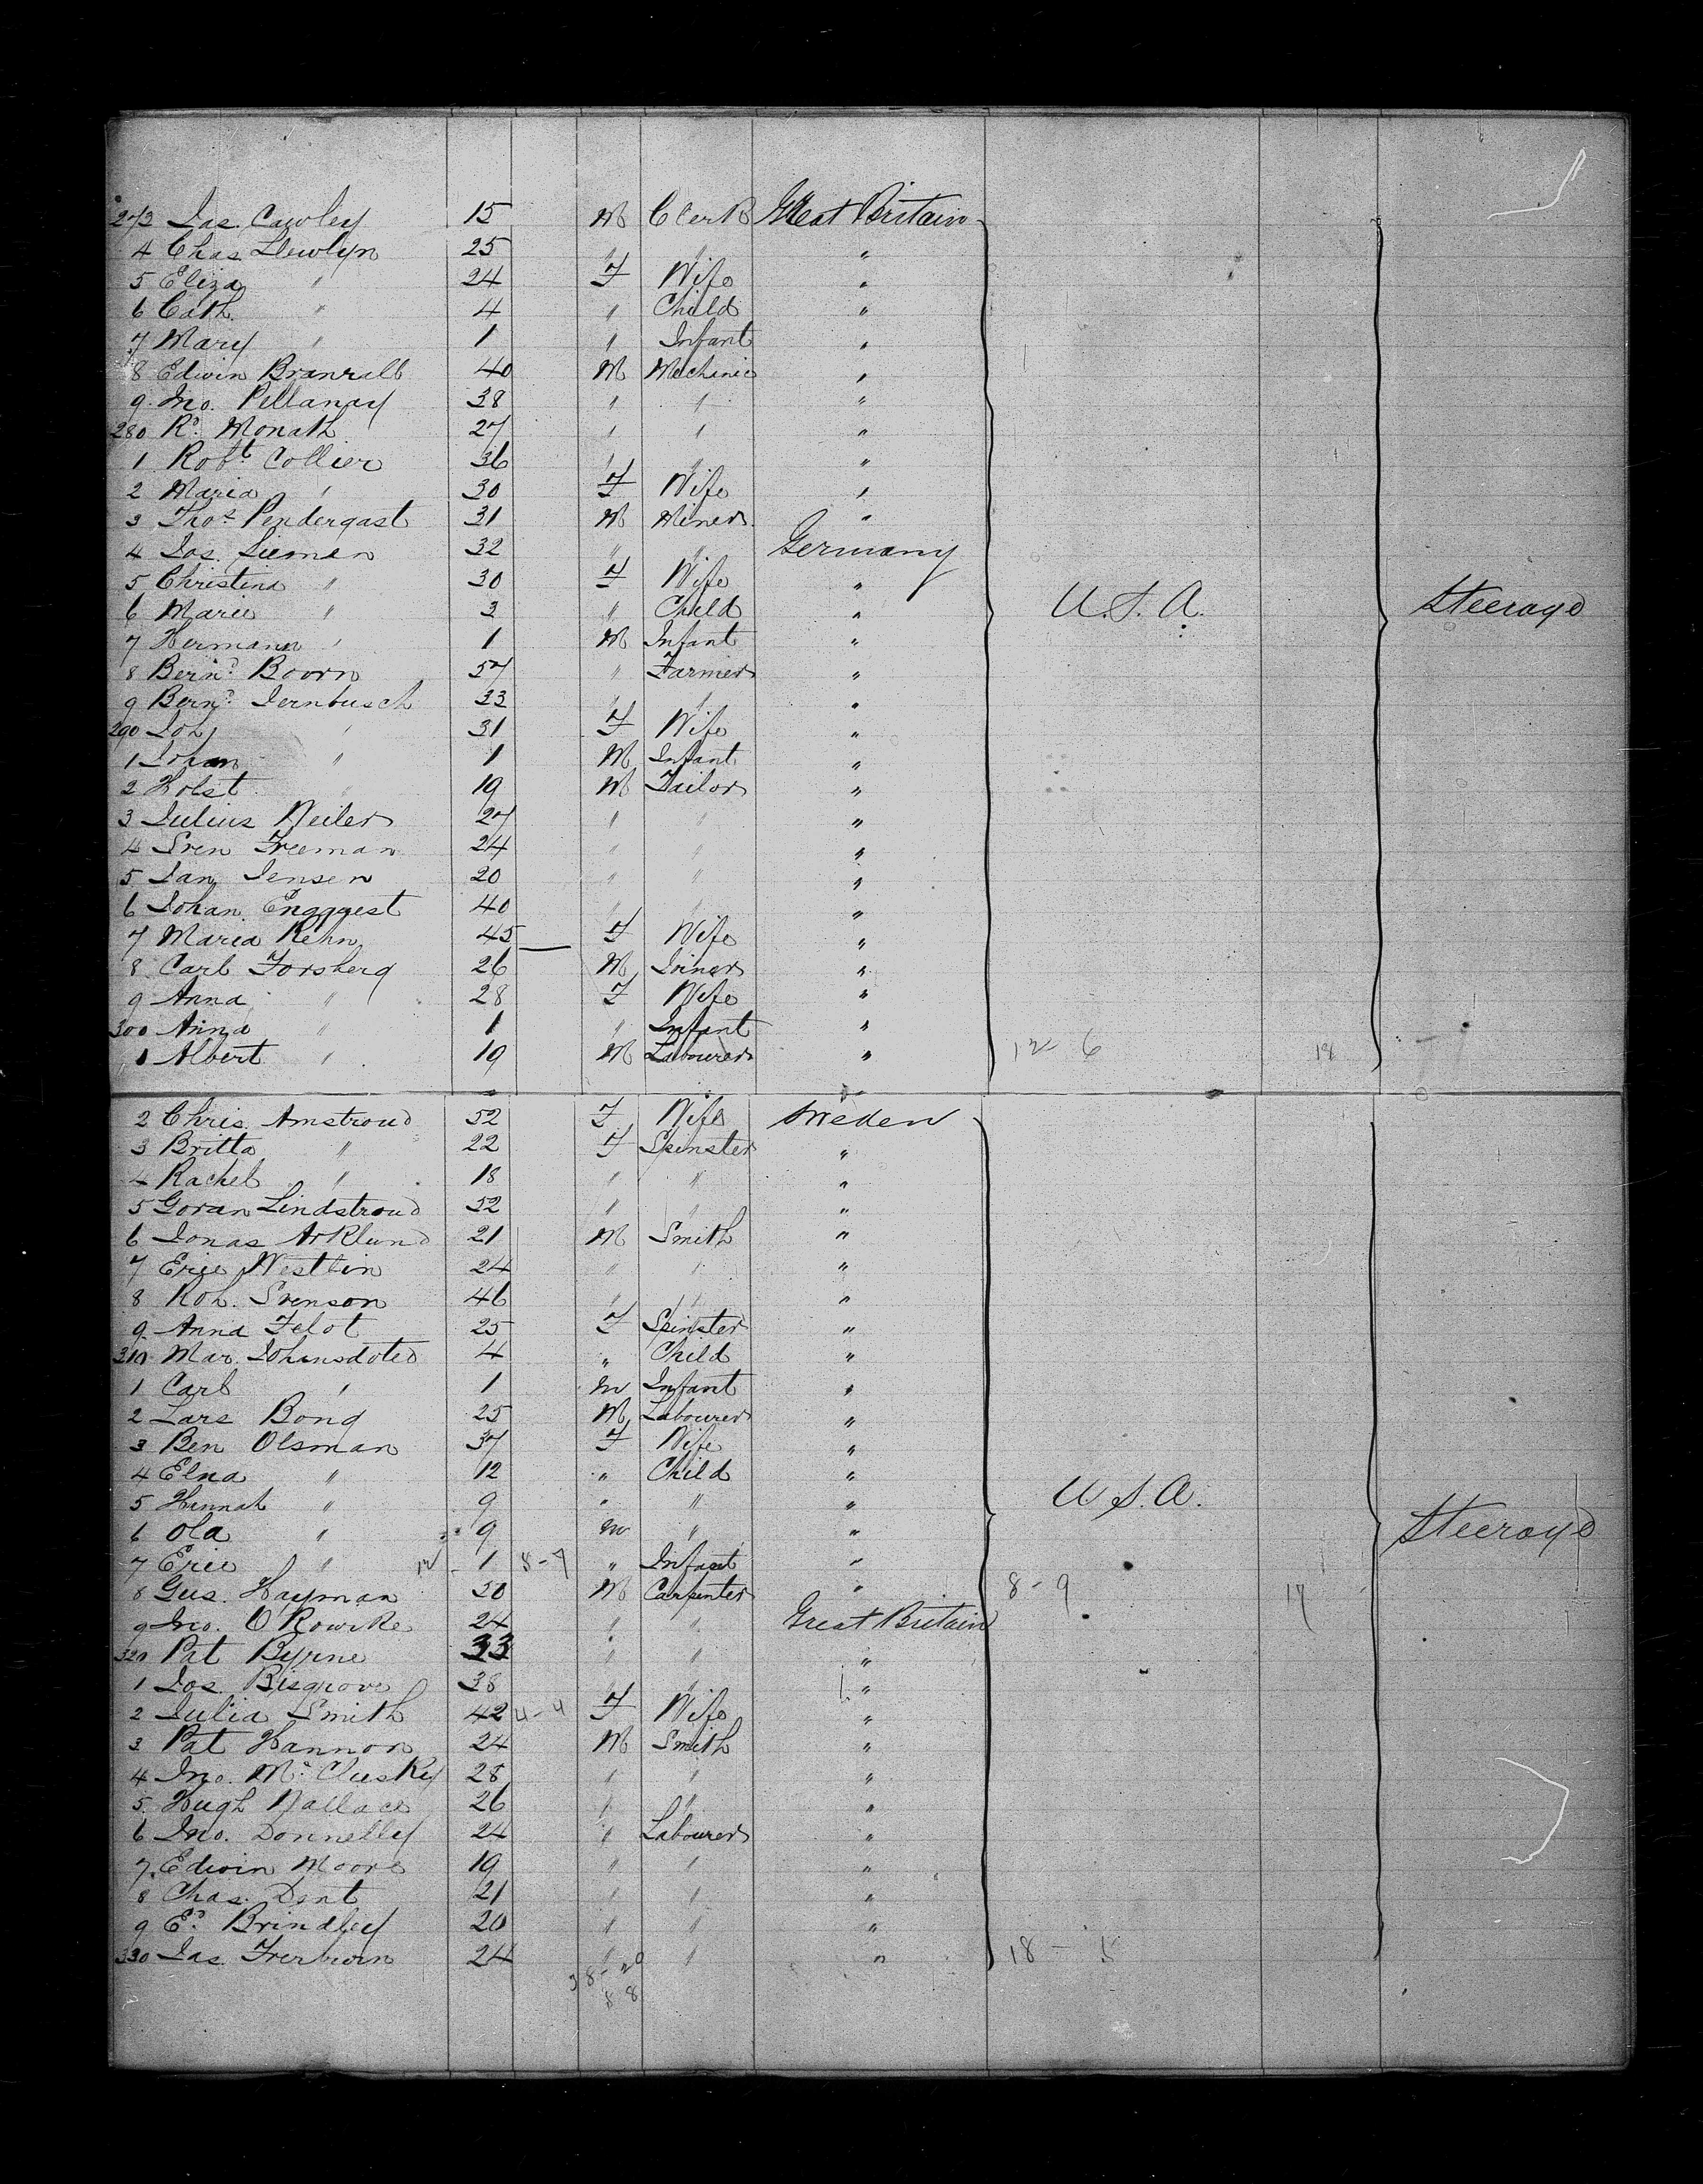 273 Jas. Cawley 15 M Clerk Great Britain
4 Chas Llewlyn 25 " " "
5 Eliza " 24 F Wife "
6 Cath. " 4 " Child "
7 Mary " 1 " Infant "
8 Edwin 40 M Mechanic "
9. Jno. Pellanay 38 " " "
280 Rd. Monath 27 " " "
1 Robt. Collier 36 " " "
2 Maria " 30 F Wife "
3 Thos Pendergast 31 M Miner "
4 Jos. Siemen 32 " " Germany
5 Christina " 30 F Wife "
6 Marie " 3 " Child " U.S.A. Steerage
7 Hermann " 1 M Infant "
8 Bernd. Boorn 57 " Farmer "
9 Bernd. Iernbusch 33 " " "
290 Joh " 31 F Wife "
1 Johan " 1 M Infant "
2 Holst " 19 M Tailor "
3 Julius Neiler 27 " " "
4 Sven Freeman 24 " " "
5 Jan Jensen 20 " " "
6 Johan Enggqest 40 " " "
7 Maria Rehn 45 F Wife "
8 Carl Forsberg 26 M Joiner "
9 Anna " 28 F Wife "
300 Anna " 1 " Infant "
1 Albert " 19 M Labourer " 12 6 18
2 Chris. Amstroud 52 F Wife Sweden
3 Britta " 22 F Spinster "
4 Rachel " 18 " " "
5 Goran Lindstroud 52 " " "
6 Jonas Arklund 21 M Smith "
7 Eric Westlin 24 " " "
8 Joh. Svenson 46 " " "
9. Anna Felot 25 F Spinster "
310 Mar. Johansdoted 4 " Child "
1 Carl " 1 M Infant "
2 Lars Bong 25 M Labourer "
3 Ben Olsman 37 F Wife "
4 Elna " 12 " Child "
5 Hannah " 9 " " " U.S.A.
6 Ola " 9 M " " Steerage
7 Eric " 12 1 8-7 " Infant "
8 Gus. Hayman 30 M Carpenter " 8-9 17
9 Jno. O Rourke 24 " " Great Britain
320 Pat Byrne 33 " " "
1 Jos. Bisgrove 38 " " "
2 Julia Smith 42 4-4 F Wife "
3 Pat Hannon 24 M Smith "
4 Jno. Mc Clusky 28 " " "
5. Hugh Wallace 26 " " "
6 Jno. Donnelly 24 " Labourer "
7. Edwin Moore 19 " " "
8 Chas. Dent 21 " " "
9 Ed. Brindley 20 " " "
330 Jas. 24 " " " 18 - 5
38-20
58